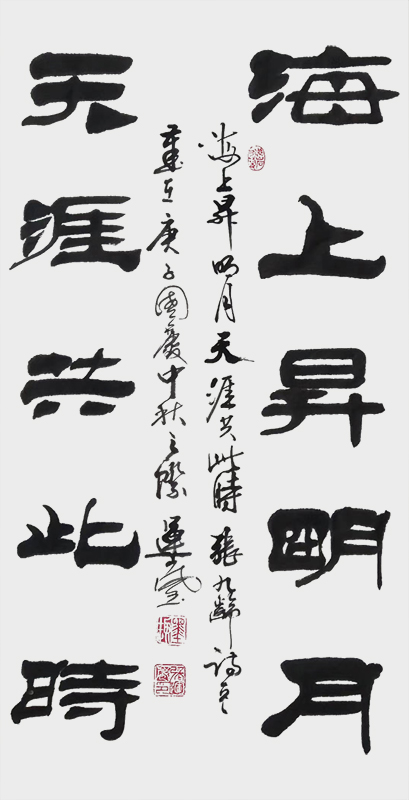 海上昇明月
天涯共此時
海上昇明月天涯共此時張九齡詩意
歲在庚子國慶中秋之際運